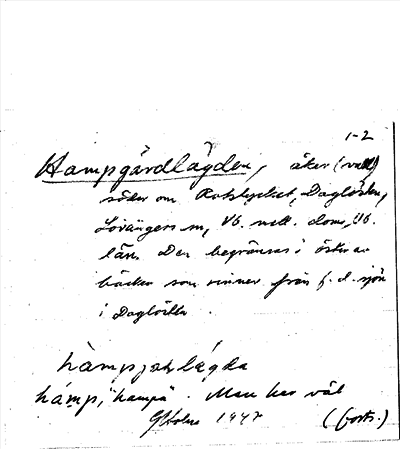 1-2
Hampgårdlägden, åker (vall)
söder om Rotstycket, Daglösten,
Lövångers sn, Vb. nell. doms., Vb.
län. Den begränsas i öster av
bäcken som rinner från f. d. sjön
i Daglösten.
hampjahlägda
hamp, "hampa". Man har väl
GHolm 1947 (forts.)